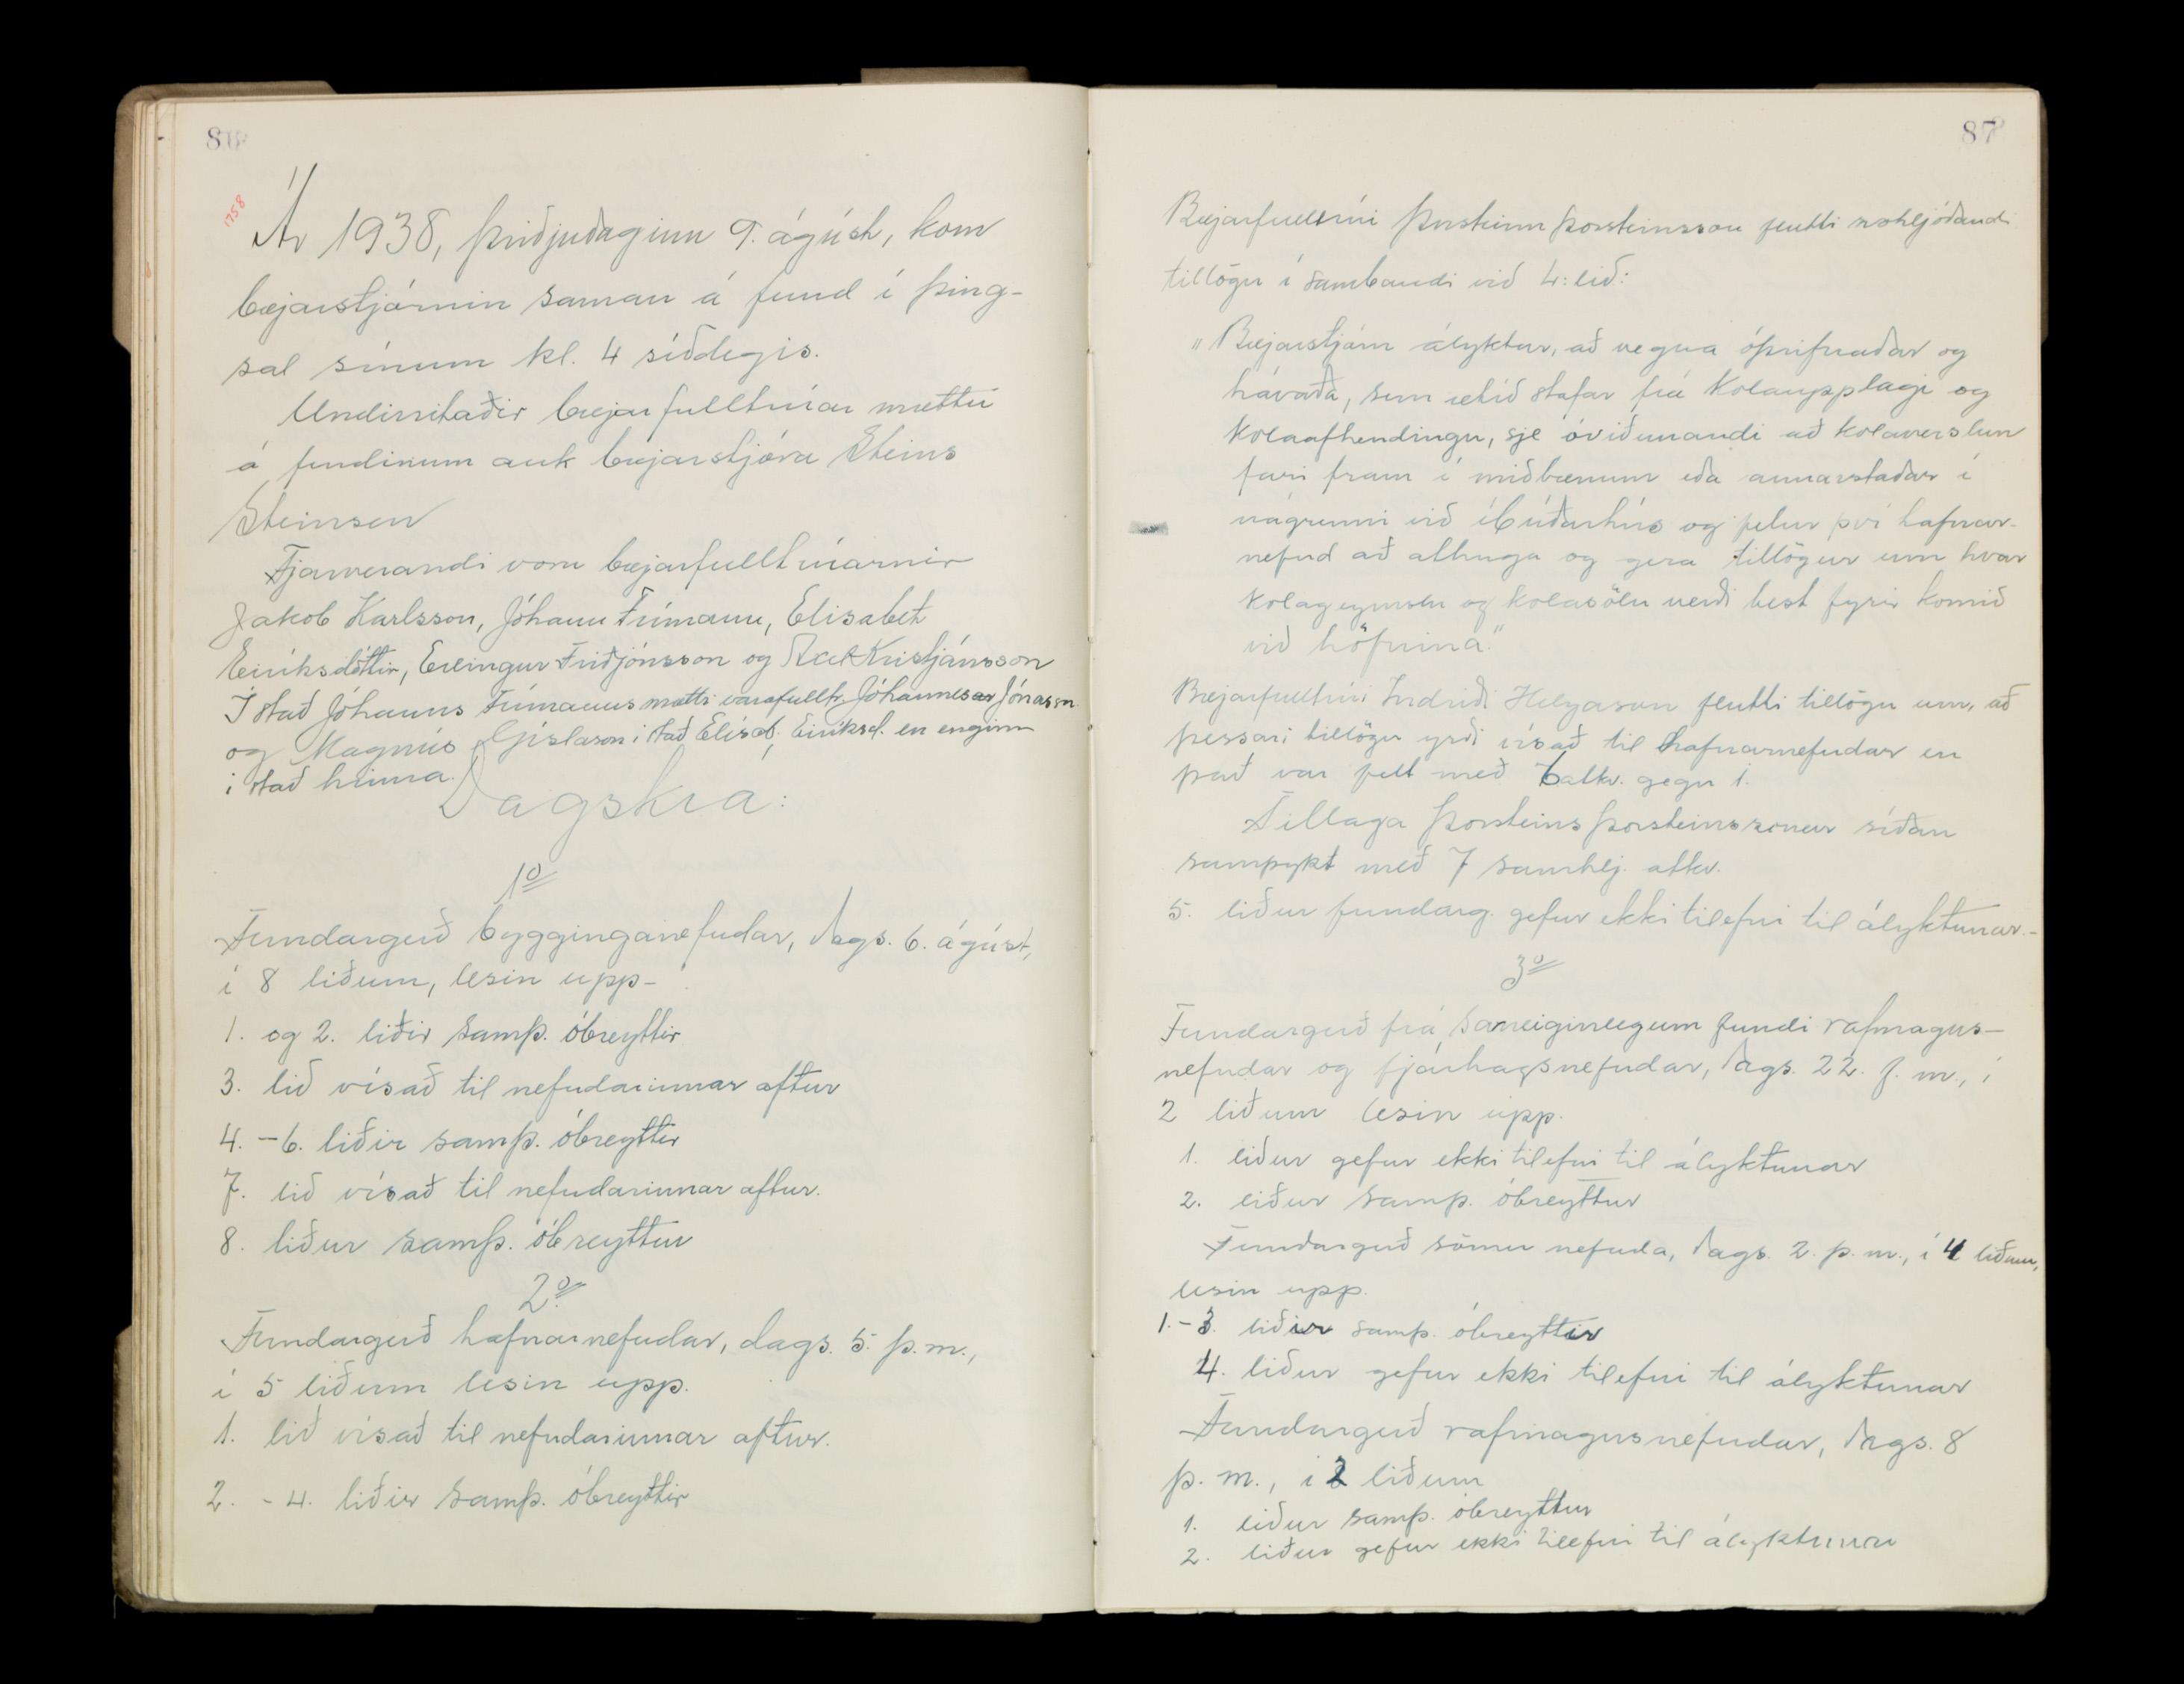 86
1758
Ár 1938, þriðjudaginn 9. ágúst, kom
bæjarstjórnin saman á fund í þing-
sal sínum kl. 4 síðdegis.
Undirritaðir bæjarfulltrúar mættu
á fundinum auk bæjarstjóra Steins
Steinsen
Fjarverandi voru bæjarfulltrúarnir
Jakob Karlsson, Jóhann Frímann, Elisabet
Eiríksdóttir, Erlingur Friðjónsson og Axel Kristjánsson
Í stað Jóhanns Frímanns mætti varafulltr. Jóhannes Jónasson
og Magnús Gíslason í stað Elísab. Eiríksd. en enginn
í stað hinna.
Dagskrá:
1º
Fundargerð bygginganefndar, dags. 6. ágúst,
í 8 liðum, lesin upp-
1. og 2. liðir samþ. óbreyttir
3. lið vísað til nefndarinnar aftur
4. - 6. liðir samþ. óbreyttir
7. lið vísað til nefndarinnar aftur.
8. liður samþ. óbreyttur
2º
Fundargerð hafnarnefndar, dags. 5. þ.m.,
í 5 liðum lesin upp.
1. lið vísað til nefndarinnar aftur.
2. - 4. liðir samþ. óbreyttir
87
Bæjarfulltrúi Þorsteinn Þorsteinsson flutti svohljóðandi
tillögu í sambandi við 4. lið:
"Bæjarstjórn ályktar, að vegna óþrifnaðar og
hávaða, sem ætíð stafar frá kolaupplagi og
kolaafhendingu, sje óviðunandi að kolaverslun
fari fram í miðbænum eða annarstaðar í
nágrenni við íbúðarhús og felur því hafnar-
nefnd að athuga og gera tillögur um hvar
kolageymslu og kolasölu verði best fyrir komið
við höfnina."
Bæjarfulltrúi Indriði Helgason flutti tillögu um, að
þessari tillögu yrði vísað til hafnarnefndar en
það var fellt með 6 atkv. gegn 1.
Tillaga Þorsteins Þorsteinssonar síðan
samþykt með 7 samhlj. atkv.
5. liður fundarg. gefur ekki tilefni til ályktunar.-
3º
Fundargerð frá sameiginlegum fundi rafmagns-
nefndar og fjárhagsnefndar, dags. 22. f. m., í
2 liðum lesin upp.
1. liður gefur ekki tilefni til ályktunar
2. liður samþ. óbreyttur
Fundargerð sömu nefnda, dags. 2. þ. m., í 4 liðum,
lesin upp.
1. - 3. liðir samþ. óbreyttir
4. liður gefur ekki tilefni til ályktunar
Fundargerð rafmagnsnefndar, dags. 8
þ. m., í 2 liðum
1. liður samþ. óbreyttur
2. liður gefur ekki tilefni til ályktunar